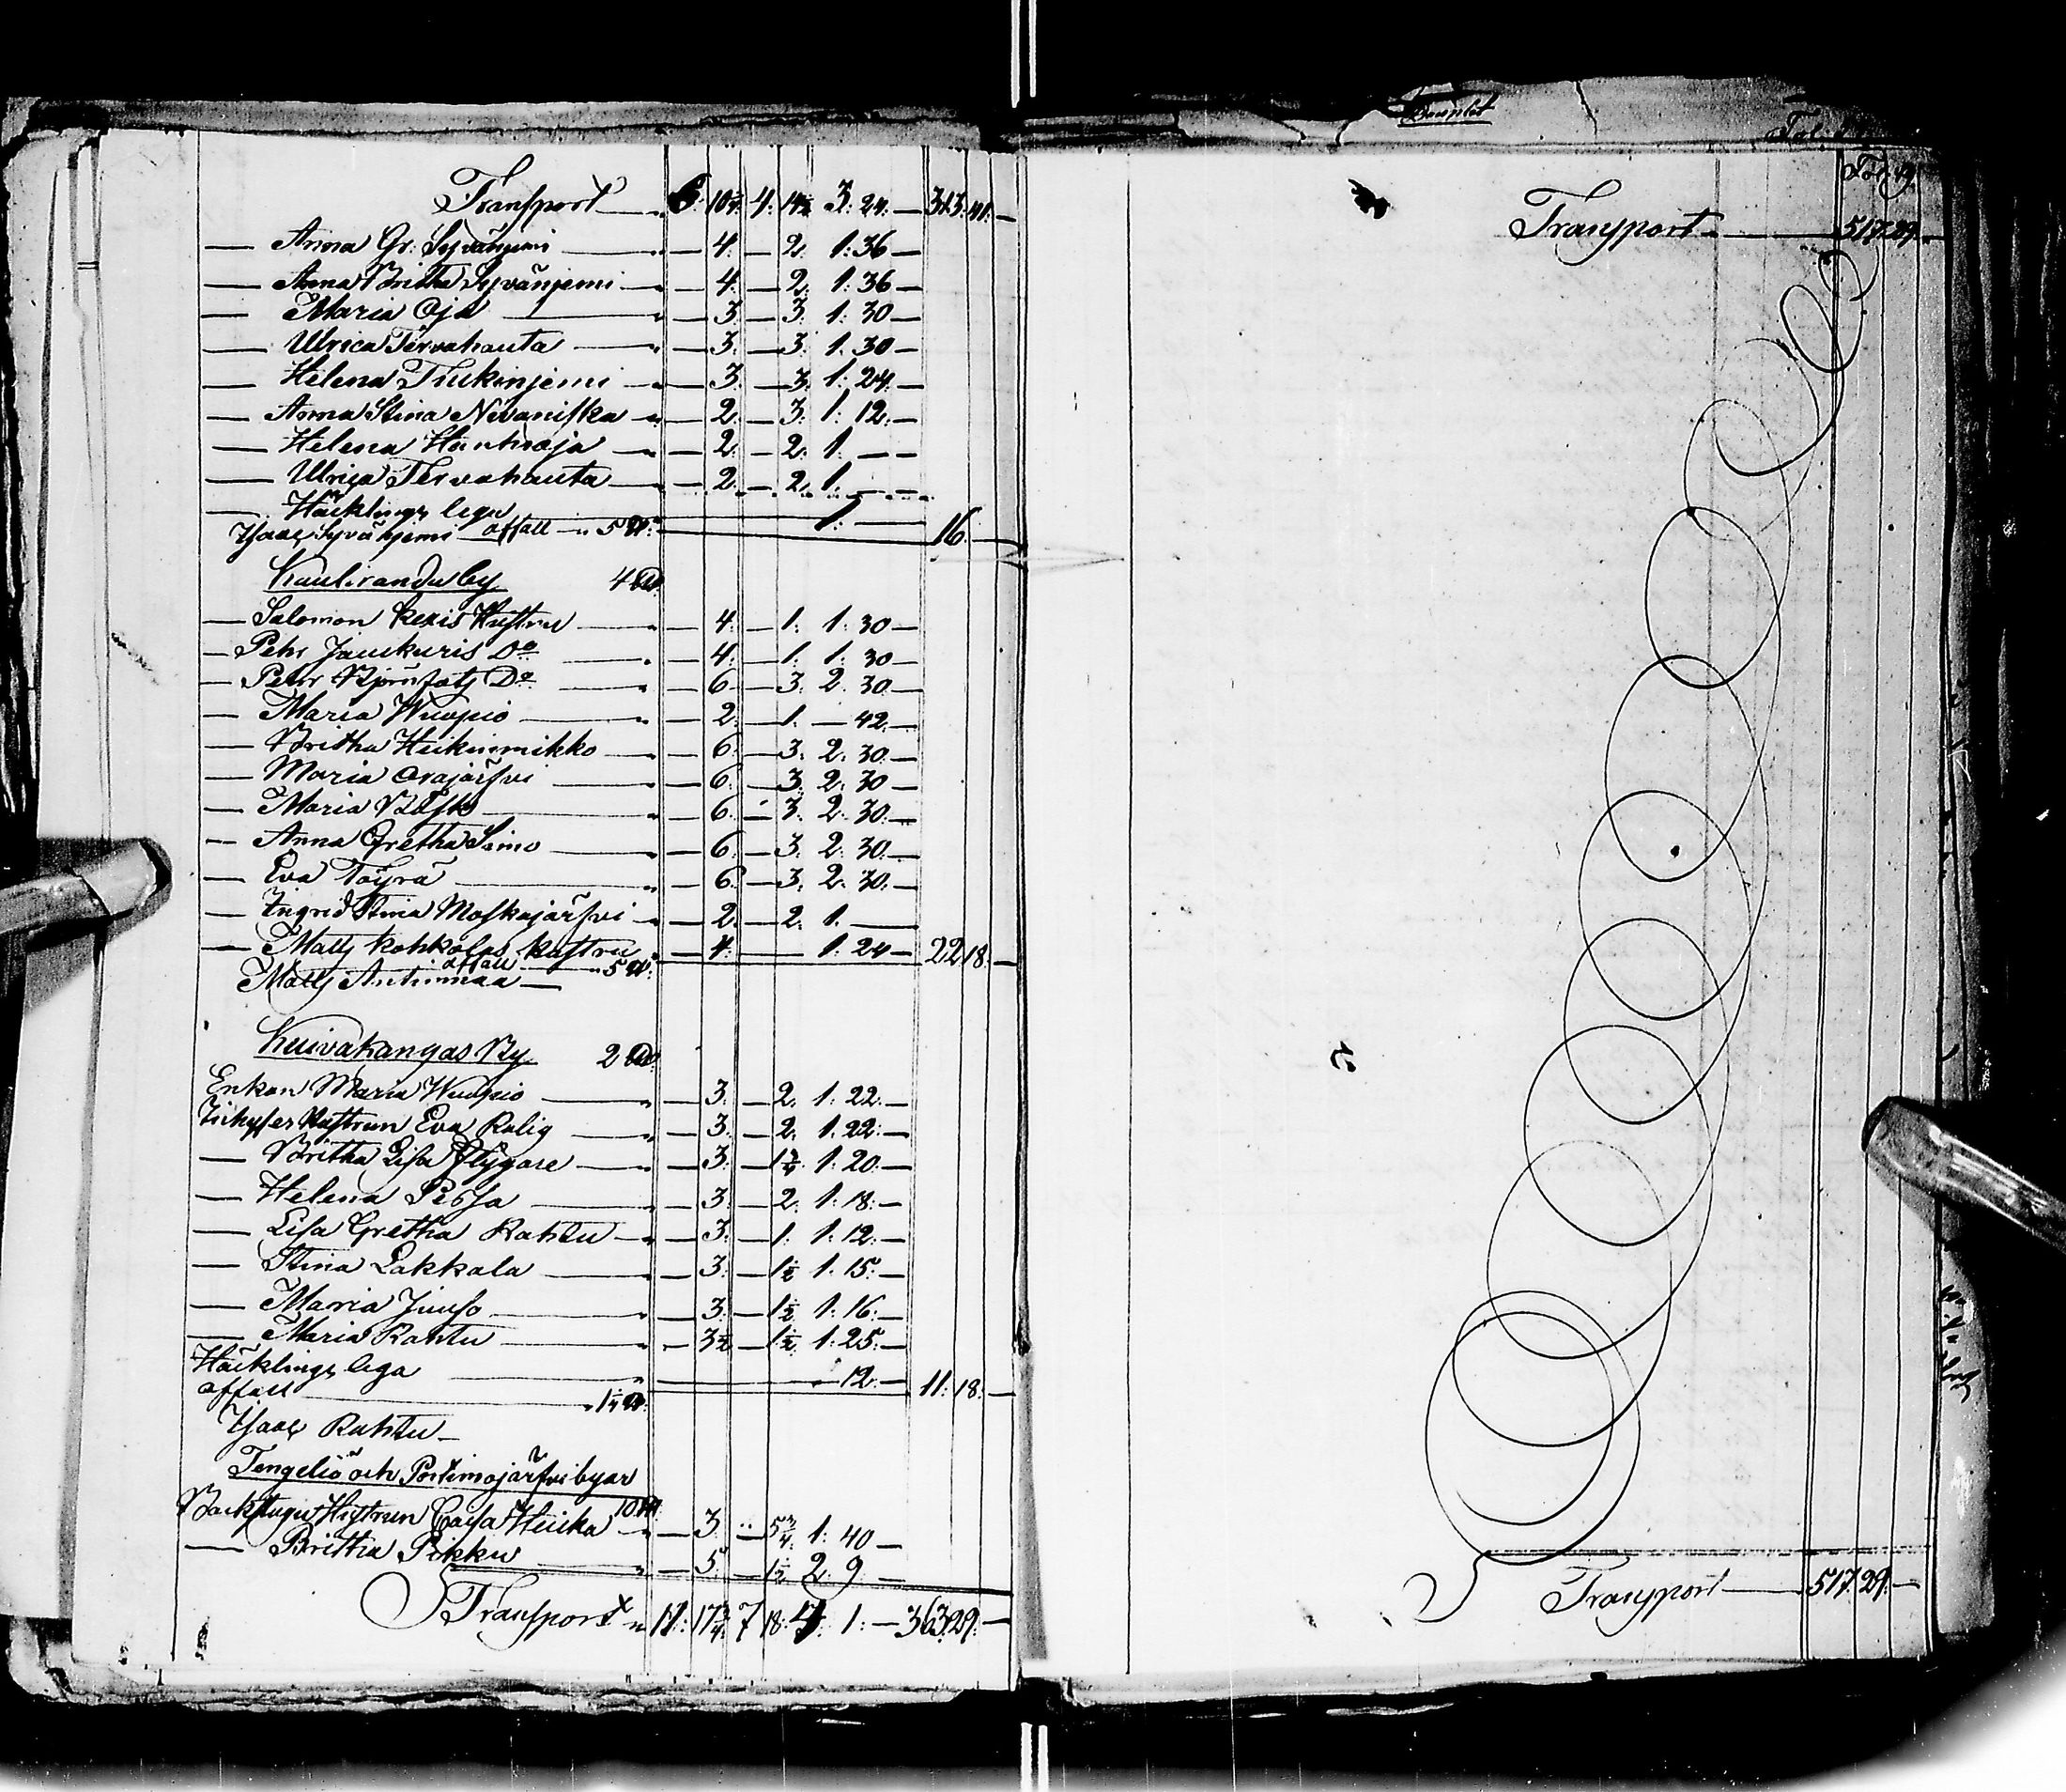 Transport 6. 10¾. 4. 14½ 3. 24. — 313. 41. —
— Anna Gr. Syvänjemi — 4. — 2. 1. 36 —
— Anna Britha Syvänjemi — 4. — 2. 1. 36 —
— Maria Oja — 3. — 3. 1. 30 —
— Ulrica Tervahauta — 3. — 3. 1. 30 —
— Helena — 3. — 3. 1. 24. —
— Anna Stina Nivaniska — 2. — 3. 1. 12. —
— Helena — 2. — 2. 1. — —
— Ulrica Tervahauta — 2. — 2. 1. — —
— Häcklings lega 1. —
Isaac Syvänjemi affall 5 ℔. 16. —
Kauliranda by 4 ℔.
— Salomon Kexis Hustru — 4. — 1. 1. 30 —
— Pehr Jauckuris Do — 4. — 1. 1. 30 —
— Petter Do — 6 — 3. 2. 30. —
— Maria Wuopio — 2. — 1. — 42. —
— Britha Heikinmikko — 6. — 3. 2. 30. —
— Maria Orajärfvi — 6. — 3. 2. 30 —
— Maria — 6. — 3. 2. 30. —
— Anna Gretha Simo — 6. — 3. 2. 30. —
— Eva Töyrä — 6. — 3. 2. 30. —
— Ingrid Stina Moskajärfvi — 2. — 2. 1. —
— Matts Kohkalos hustru — 4. — 1. 24 — 22 18. —
affall 5 ℔.
Matts Antinmaa —
Kuivakangas By 2 ℔.
Enkan Maria Wuopio — 3. — 2. 1. 22. —
Inhyses Hustrun Eva Kalig — 3. — 2. 1. 22. —
— Britha Lisa Flygare — 3. — 1¾. 1. 20. —
— Helena — 3. — 2. 1. 18. —
— Lisa Gretha Rahtu — 3. — 1. 1. 12. —
— Stina Lakkala — 3. — 1½ 1. 15. —
— Maria Junso — 3. — 1½ 1. 16. —
— Maria Rahtu — 3½ — 1½. 1. 25. —
Häcklings lega — 12. — 11. 18. —
affall 1¼ ℔.
Isaac Rahtu —
Tengeliö och Portimojärfvi byar
10 ℔.
Backstugu Hustrun Caisa Heicka — 3. — 5¾. 1. 40 —
— Brittha Pikku — 5. — 1½ 2. 9. —
Transport 11. 17¾. 7 18. 4. 1. — 363. 29. —
Transport — 517. 29. —
Transport — 517. 29. —